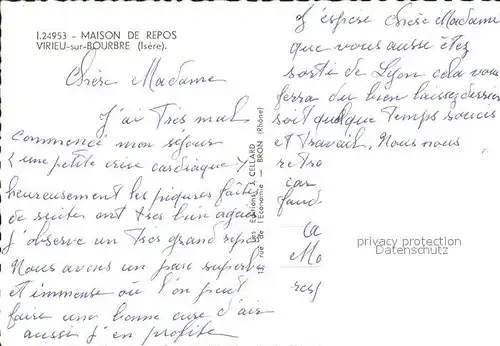 I.24953 - MAISON DE REPOS
VIRIEU-sur-BOURBRE (Isère).
Chère Madame
J'ai Très mal
commencé mon séjour
(une petite crise cardiaque)
heureusement les piqures faites
de suites ont très bien agies
j'observe un Très grand repos
Nous avons un parc superbe
et immense où l'on peut
faire une bonne cure d'air
aussi j'en profite
Les Editions J. CELLARD
rue de l'Economie - BRON (Rhône)
J'espère Chère Madame
que vous aussi êtes
sortie de Lyon cela vous
ferra du bien laissez dessier
soit quelque Temps soucis
et Travail, Nous nous
retro
car
faud
Ca
Mo
resp
privacy protection
Datenschutz